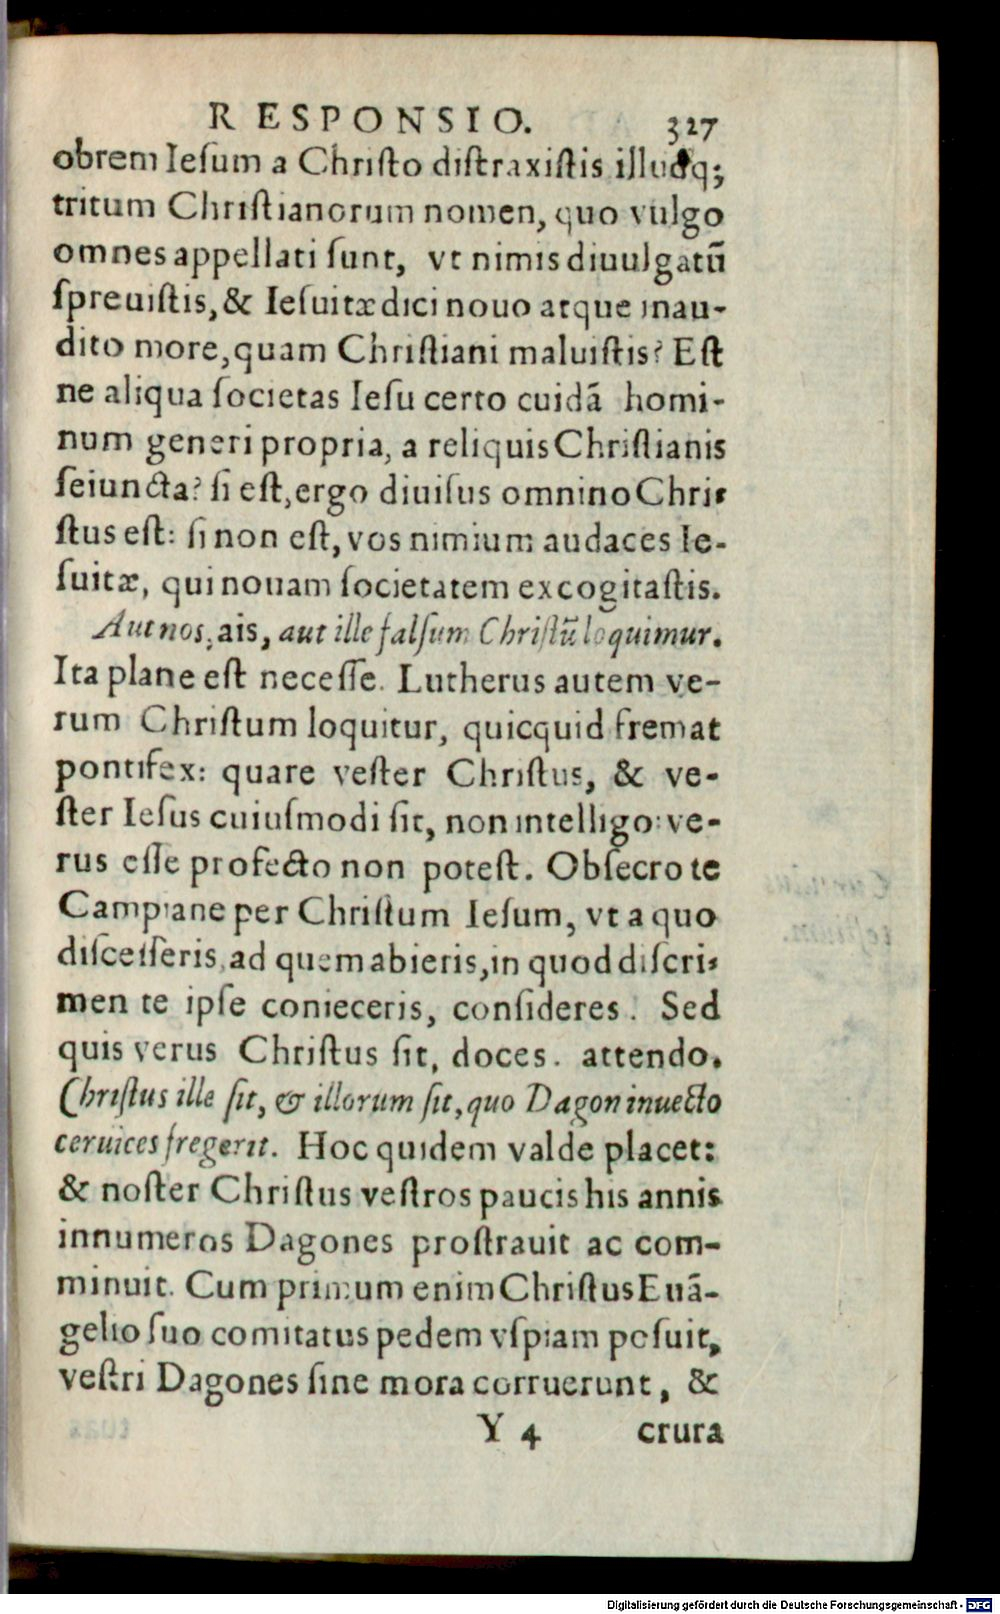 RESPONSIO. 327
obrem Iesum a Christo distraxistis illudq;
tritum Christianorum nomen, quo vulgo
omnes appellati sunt, vt nimis diuulgatū
spreuistis, & Iesuitæ dici nouo atque inau-
dito more, quam Christiani maluistis? Est
ne aliqua societas Iesu certo cuidā homi-
num generi propria, a reliquis Christianis
seiuncta? si est, ergo diuisus omnino Chri-
stus est: si non est, vos nimium audaces Ie-
suitæ, qui nouam societatem excogitastis.
Aut nos, ais, aut ille falsum Christū loquimur.
Ita plane est necesse. Lutherus autem ve-
rum Christum loquitur, quicquid fremat
pontifex: quare vester Christus, & ve-
ster Iesus cuiusmodi sit, non intelligo: ve-
rus esse profecto non potest. Obsecro te
Campiane per Christum Iesum, vt a quo
discesseris, ad quem abieris, in quod discri-
men te ipse conieceris, consideres. Sed
quis verus Christus sit, doces. attendo.
Christus ille sit, & illorum sit, quo Dagon inuecto
ceruices fregerit. Hoc quidem valde placet:
& noster Christus vestros paucis his annis
innumeros Dagones prostrauit ac com-
minuit. Cum primum enim Christus Euā-
gelio suo comitatus pedem vspiam posuit,
vestri Dagones sine mora corruerunt, &
Y 4 crura
Digitalisierung gefördert durch die Deutsche Forschungsgemeinschaft - DFG